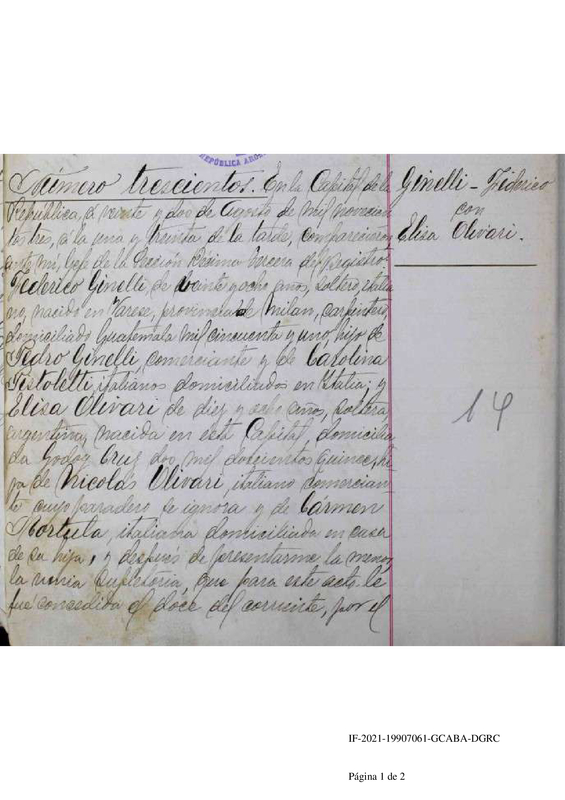 REPÚBLICA ARG
Número trescientos. En la Capital de la
República, á veinte y dos de Agosto de mil novecien
tos tres, á la una y treinta de la tarde, comparecieron
ante mi, Gefe de la Sección Décima tercera del Registro
Federico Ginelli, de veinte y ocho años, soltero, italia
no, nacido en Varese, provincia de Milan, carpintero,
domiciliado Guatemala mil cincuenta y uno, hijo de
Pedro Ginelli, comerciante y de Carolina
Pistoletti, italianos domiciliados en Italia; y
Elisa Olivari de diez y ocho años, soltera,
argentina, nacida en esta Capital, domicilia
da Godoy Cruz dos mil doscientos quince, hi
ja de Nicolás Olivari, italiano comercian
te cuyo paradero se ignora y de Cármen
italiana domiciliada en casa
de su hija, y después de presentarme la menor
la venia supletoria, que para este acto le
fué concedida el doce del corriente, por el
Ginelli - Federico
con
Elisa Olivari.
14
IF-2021-19907061-GCABA-DGRC
Página 1 de 2